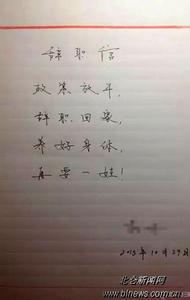 辞职信
政策放开，
辞职回家，
养好身体，
再要一娃！
2015年10月29日
北仑新闻网
www.blnews.com.cn